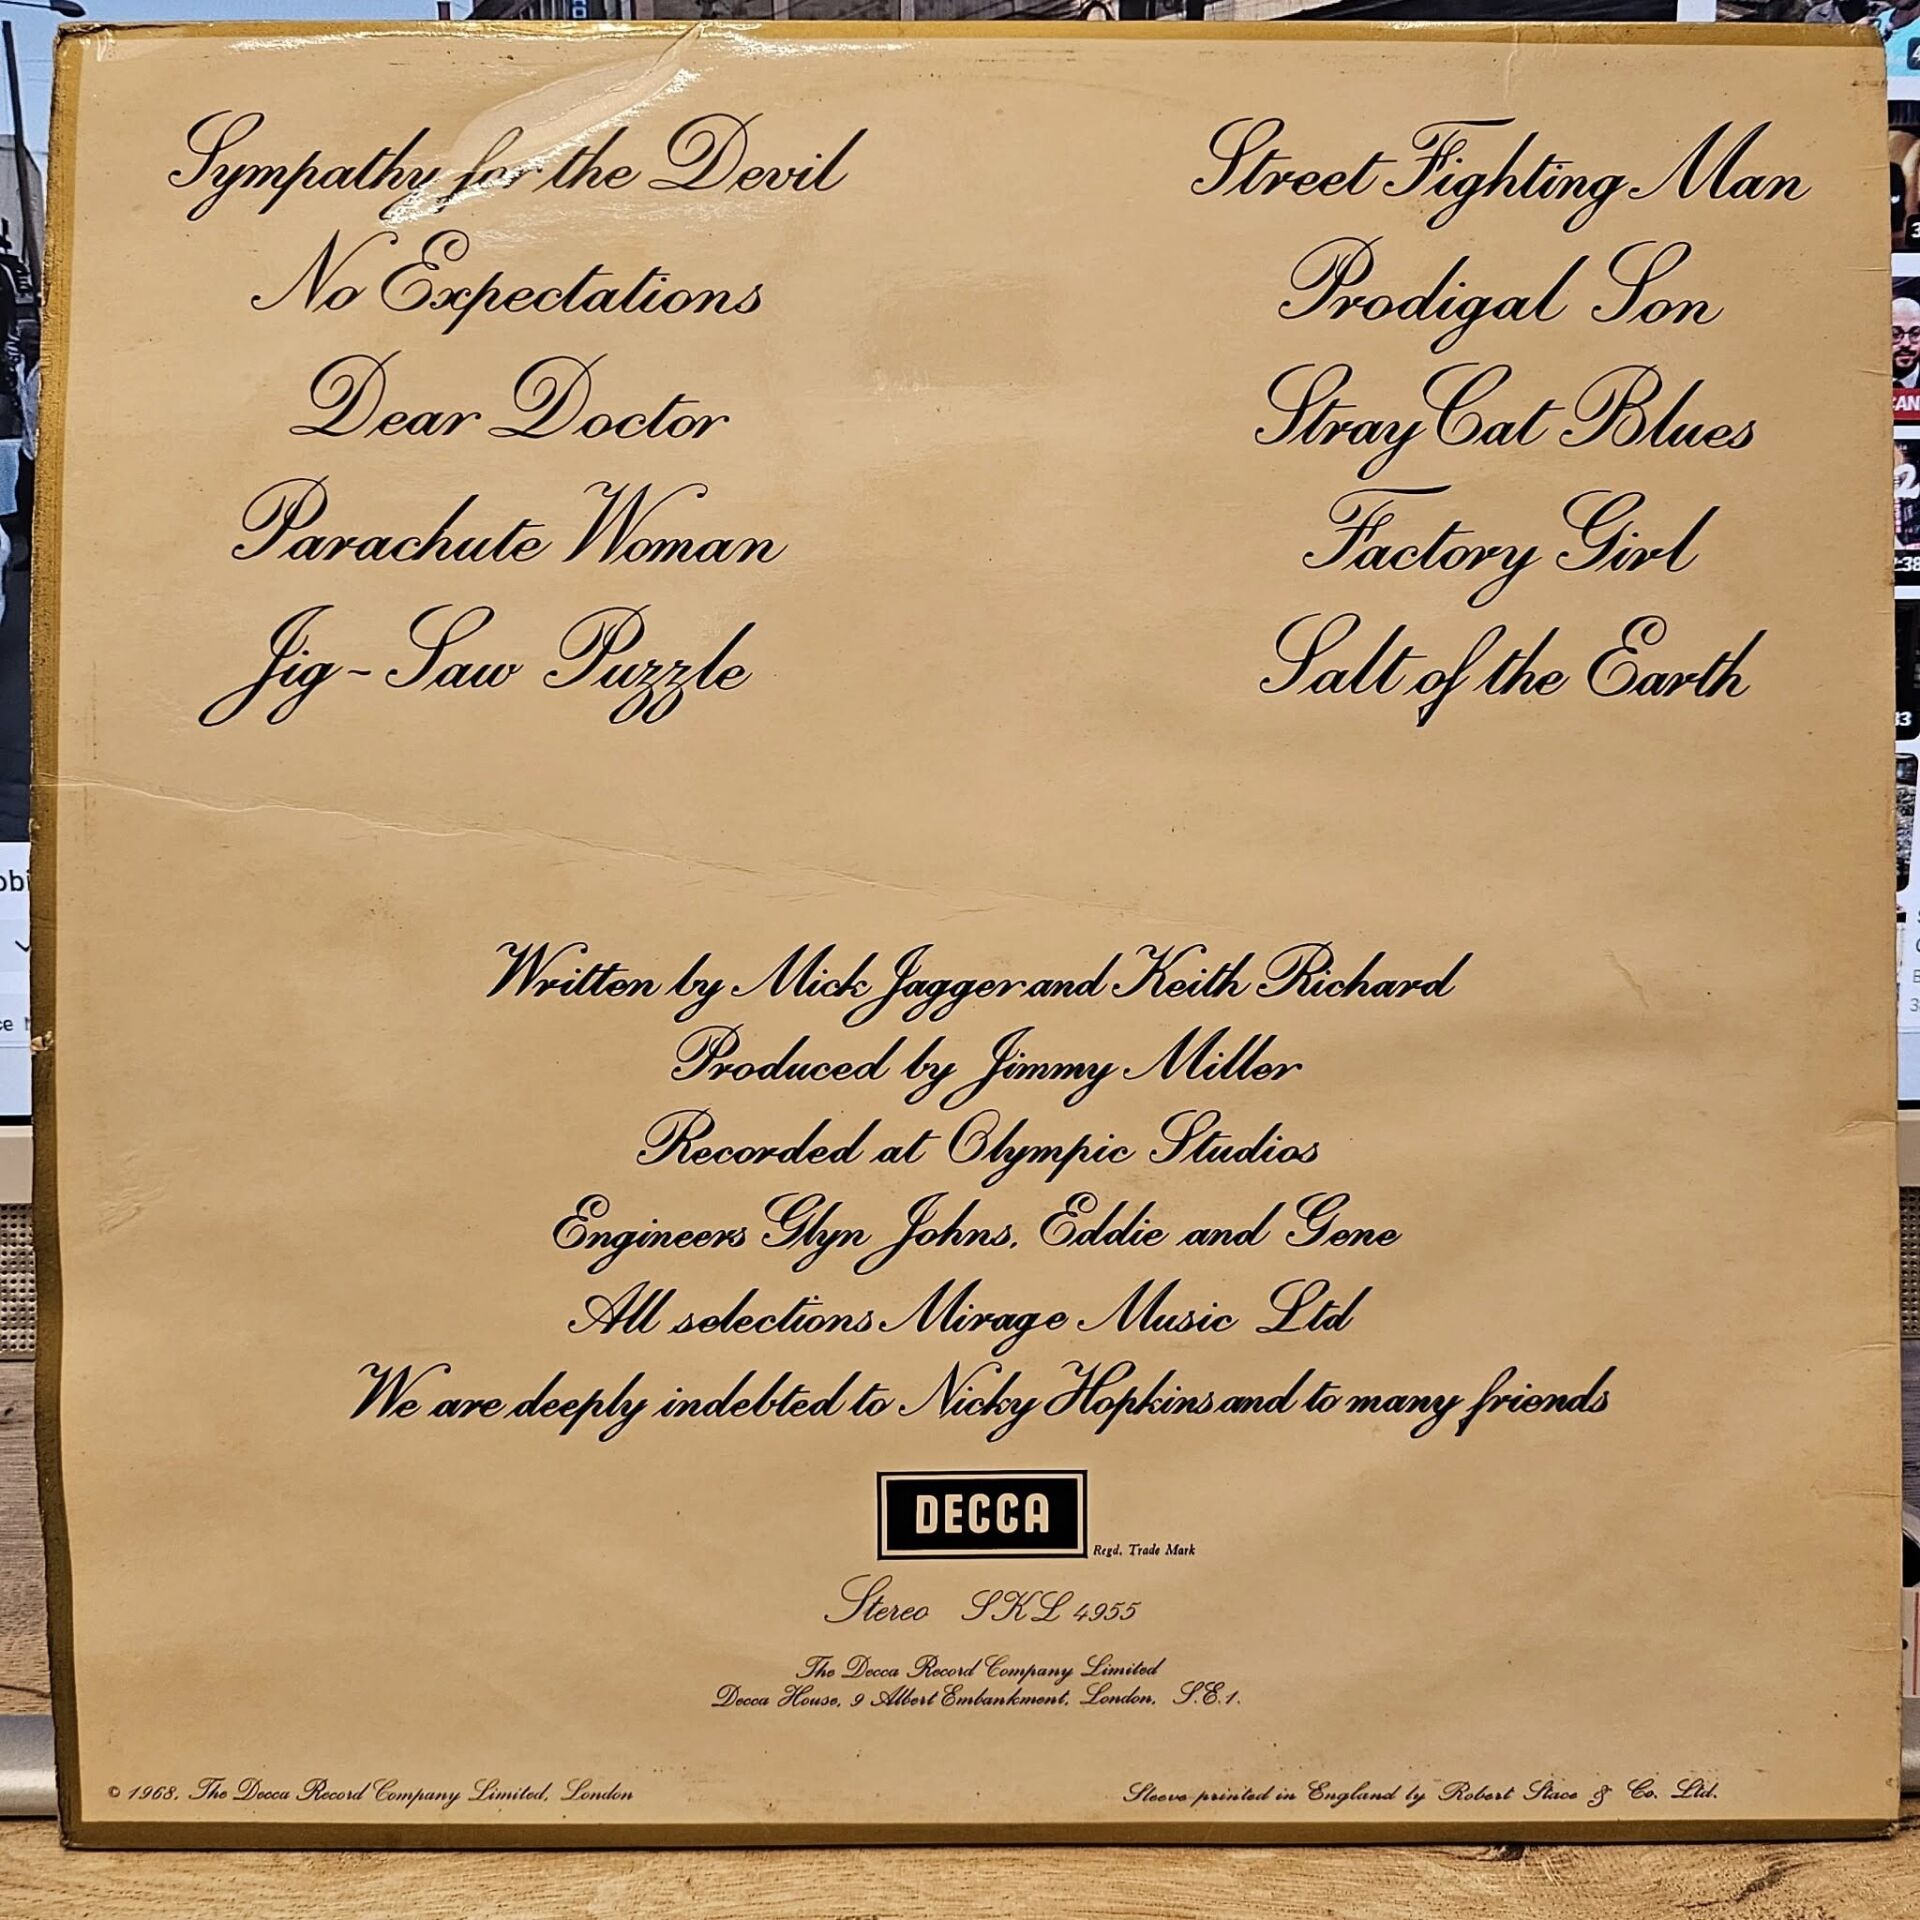 Sympathy for the Devil
No Expectations
Dear Doctor
Parachute Woman
Jig-Saw Puzzle
Street Fighting Man
Prodigal Son
Stray Cat Blues
Factory Girl
Salt of the Earth
Written by Mick Jagger and Keith Richard
Produced by Jimmy Miller
Recorded at Olympic Studios
Engineers Glyn Johns. Eddie and Gene
All selections Mirage Music Ltd
We are deeply indebted to Nicky Hopkins and to many friends
DECCA
Regd. Trade Mark
Stereo SKL 4955
The Decca Record Company Limited
Decca House, 9 Albert Embankment, London, S.E.1.
© 1968, The Decca Record Company Limited, London
Sleeve printed in England by Robert Stace & Co. Ltd.